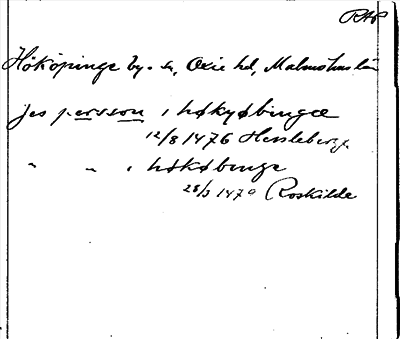 RAP
Hököpinge by. o. sn, Oxie hd, Malmöhus län
Jes persson i høkyøbingæ
12/8 1476 Hessleberge
" " i høkøbinge
28/3 1479 Roskilde